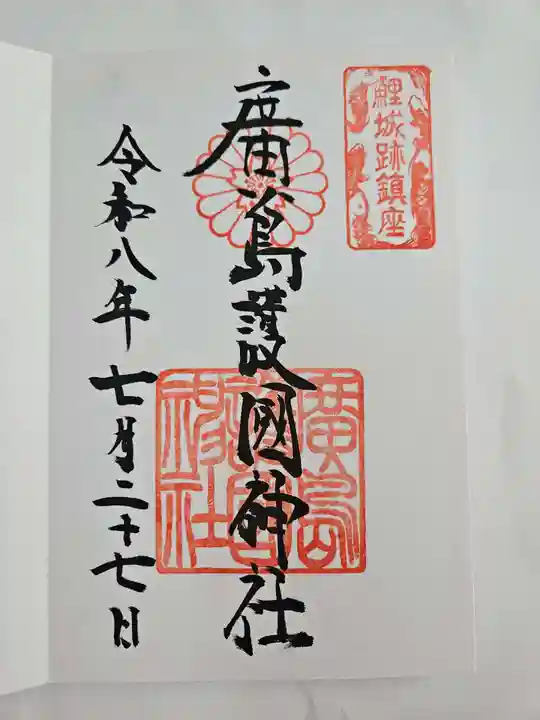 鯉城跡鎮座
廣島護國神社
廣島護國神社
令和八年七月二十七日